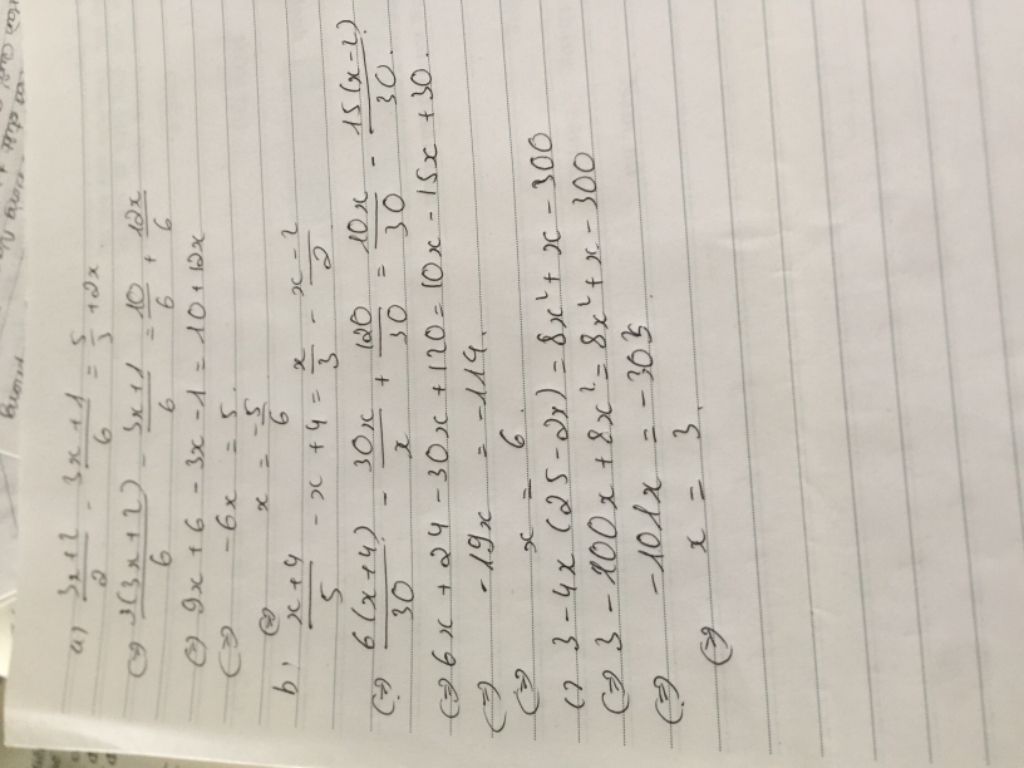 a) (3x+2)/2 - (3x+1)/6 = 5/3 + 2x
(=) 3(3x+2)/6 - (3x+1)/6 = 10/6 + 12x/6
(=) 9x + 6 - 3x - 1 = 10 + 12x
(=) -6x = 5
(=) x = -5/6
b) (x+4)/5 - x + 4 = x/3 - (x-2)/2
(=) 6(x+4)/30 - 30x/x + 120/30 = 10x/30 - 15(x-2)/30
(=) 6x + 24 - 30x + 120 = 10x - 15x + 30
(=) -19x = -114
(=) x = 6
c) 3 - 4x(25 - 2x) = 8x² + x - 300
(=) 3 - 100x + 8x² = 8x² + x - 300
(=) -101x = -303
(=) x = 3